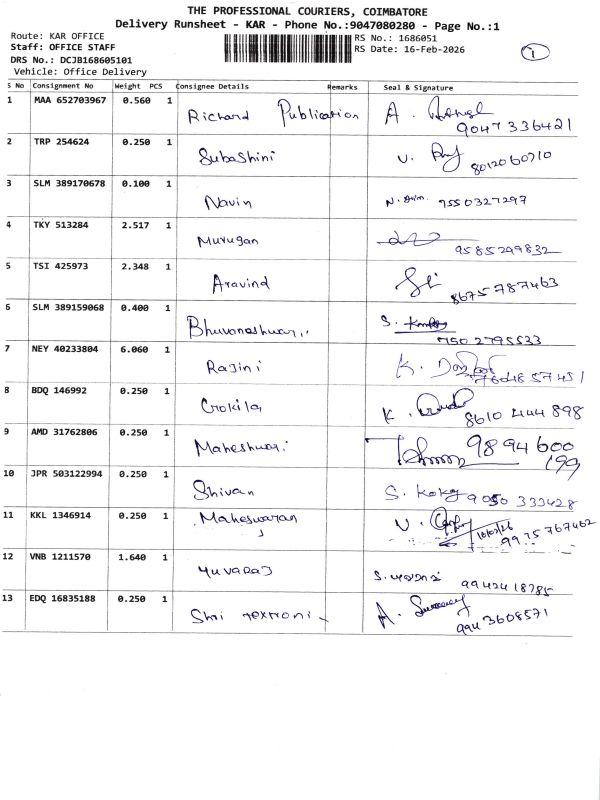 THE PROFESSIONAL COURIERS, COIMBATORE
Delivery Runsheet - KAR - Phone No.:9047080280 - Page No.:1
Route: KAR OFFICE RS No.: 1686051
Staff: OFFICE STAFF RS Date: 16-Feb-2026
DRS No.: DCJB168605101 1
Vehicle: Office Delivery
S No Consignment No Weight PCS Consignee Details Remarks Seal & Signature
1 MAA 652703967 0.560 1 Richard Publication A.
9047336421
2 TRP 254624 0.250 1 Subashini V.
8012060710
3 SLM 389170678 0.100 1 Navin N. 9550327297
4 TKY 513284 2.517 1 Murugan
9585299832
5 TSI 425973 2.348 1 Aravind
8675787463
6 SLM 389159068 0.400 1 Bhuvaneshwari S.
7502795533
7 NEY 40233804 6.060 1 Rajini K.
7604857451
8 BDQ 146992 0.250 1 Gokila K.
8610444898
9 AMD 31762806 0.250 1 Maheshwari 9894600
199
10 JPR 503122994 0.250 1 Shivan S. 9050333428
11 KKL 1346914 0.250 1 Maheswaran V.
9975767462
12 VNB 1211570 1.640 1 Yuvaraj S. 9942418785
13 EDQ 16835188 0.250 1 Shri A.
9943608571